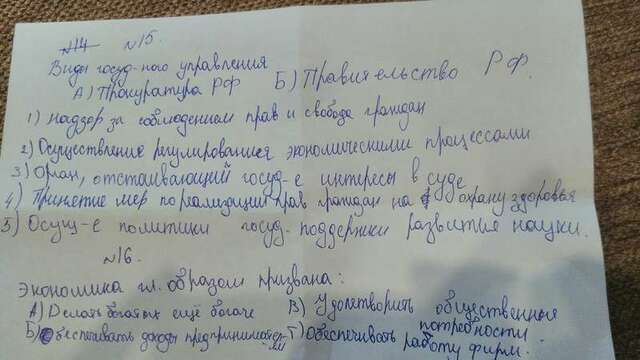 №14 №15.
Виды госуд-ного управления
А) Прокуратура РФ Б) Правительство РФ.
1) надзор за соблюдением прав и свобода граждан
2) Осуществление регулирования экономическими процессами
3) Орган, отстаивающий госуд-е интересы в суде
4) Принятие мер по реализации прав граждан на охрану здоровья
5) Осущ-е политики госуд. поддержки развития науки.
№16.
Экономика гл. образом призвана:
А) Делать богатых ещё богаче В) Удолетворить общественные потребности.
Б) Обеспечивать доходы предпринимателям Г) Обеспечивать работу фирм.